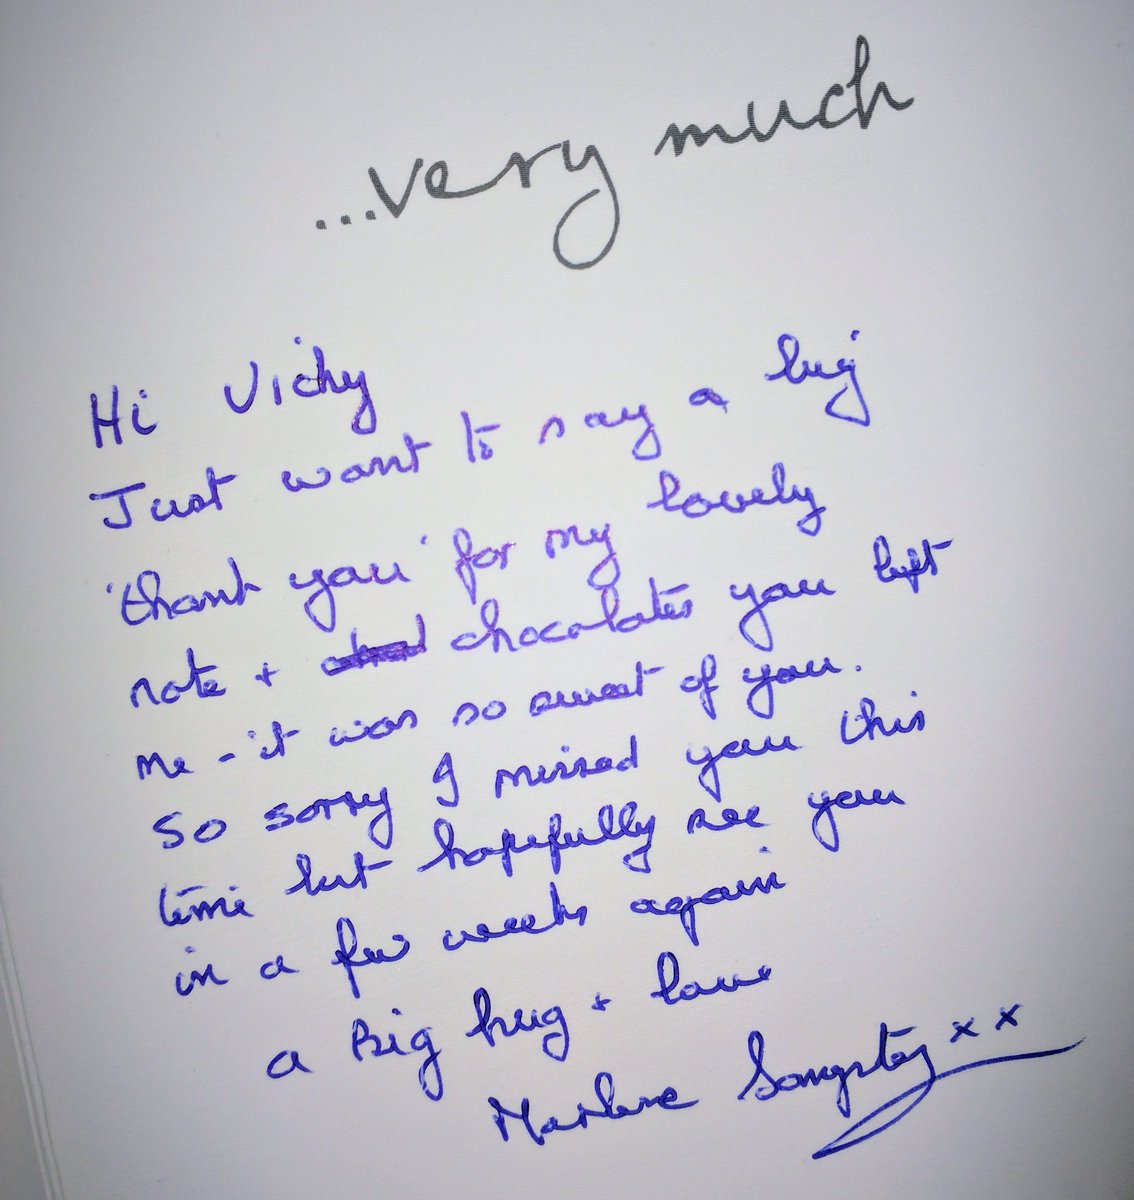 ...very much
Hi Vicky
Just want to say a big
'thank you' for my lovely
note + chocolates you left
me - it was so sweet of you.
So sorry I missed you this
time but hopefully see you
in a few weeks again
a Big hug + love
Marlene x x